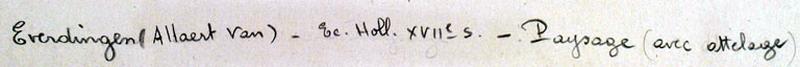 Everdingen (Allaert Van) - Ec. Holl. XVIIe s. - Paysage (avec attelage)